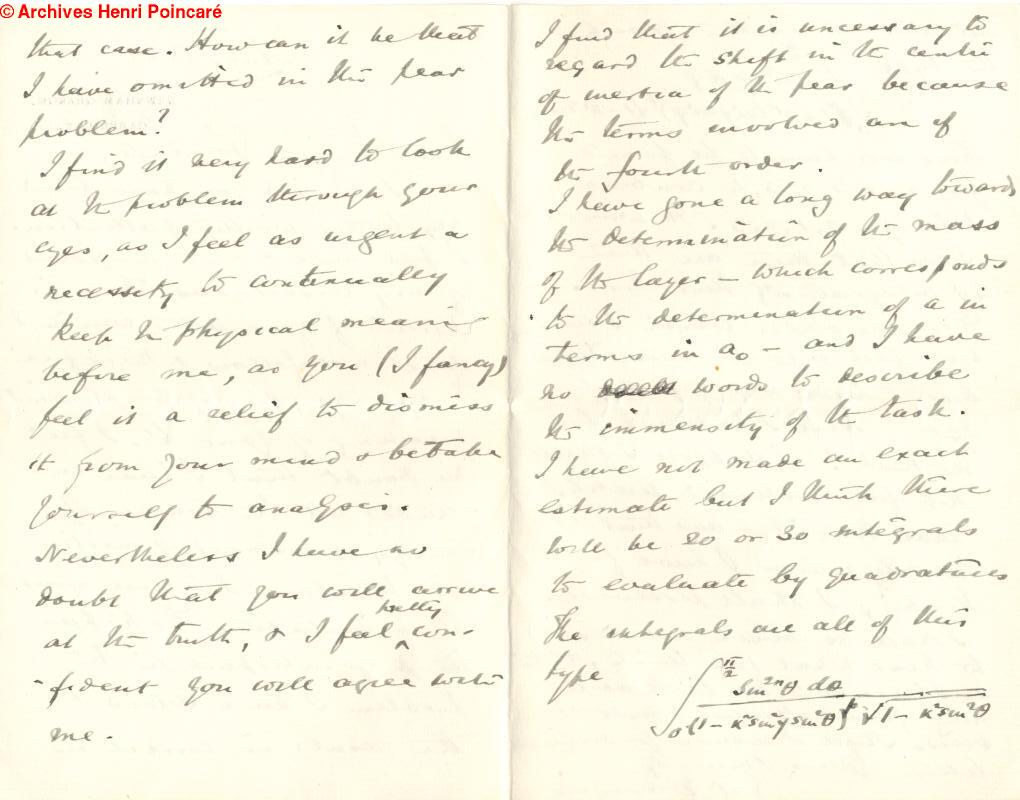 © Archives Henri Poincaré
that case. How can it be that
I have omitted in the pear
problem?
I find it very hard to look
at the problem through your
eyes, as I feel as urgent a
necessity to continually
keep the physical meaning
before me, as you (I fancy)
feel it a relief to dismiss
it from your mind & betake
yourself to analysis.
Nevertheless I have no
doubt that you will arrive
at the truth, & I feel pretty con-
-fident you will agree with
me.
I find that it is unnecessary to
regard the shift in the centre
of inertia of the pear because
the terms involved are of
the fourth order.
I have gone a long way towards
the determination of the mass
of the layer – which corresponds
to the determination of a in
terms in a₀ – and I have
no words to describe
the immensity of the task.
I have not made an exact
estimate but I think there
will be 20 or 30 integrals
to evaluate by quadratures
The integrals are all of this
type ∫₀^{π/2} sin²ⁿθ dθ / (1 – κ² sin²γ sin²θ) √1 – κ² sin²θ